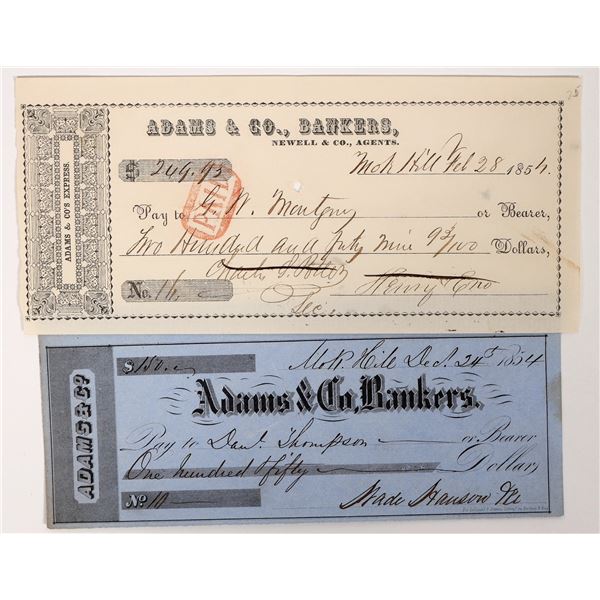 ADAMS & CO'S EXPRESS.
ADAMS & CO., BANKERS,
NEWELL & CO., AGENTS.
$ 249.93 Mok Hill Feb 28 1854.
PAID
Pay to G. W. or Bearer,
Two Hundred and forty nine 93/100 Dollars,
No. 16 Henry Eno
Sec.
25
ADAMS & Co.
$150. Mok. Hill Dec. 24th 1854
Adams & Co, Bankers.
Pay to Danl. Thompson or Bearer
One hundred & fifty Dollars
No. 10 Wade Hanson